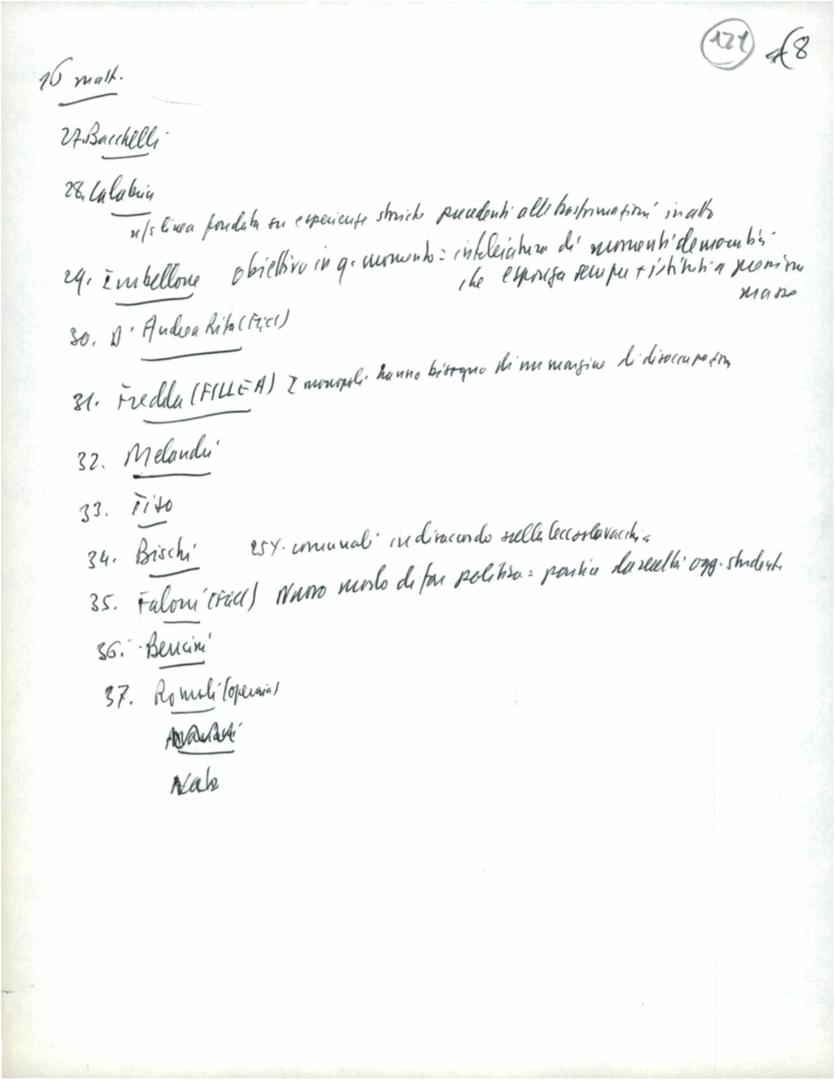 121 8
16 matt.
27. Bacchelli
28. Calabria
n/s linea fondata su esperienze storiche precedenti alle trasformazioni in atto
29. Imbellone obiettivo in q. momento = intelaiatura di momenti
che esprima sempre + istituti a
massa
30. D'Andrea Rita (FGCI)
31. Fredda (FILLEA) I monopoli hanno bisogno di un margine di disoccupazione
32. Melandri
33. Tiso
34. Bischi 25% comunali in disaccordo sulla Cecoslovacchia
35. Faloni (FGCI) Nuovo modo di far politica = partire da scelta ogg. studenti
36. Bencini
37. Romoli (operaia)